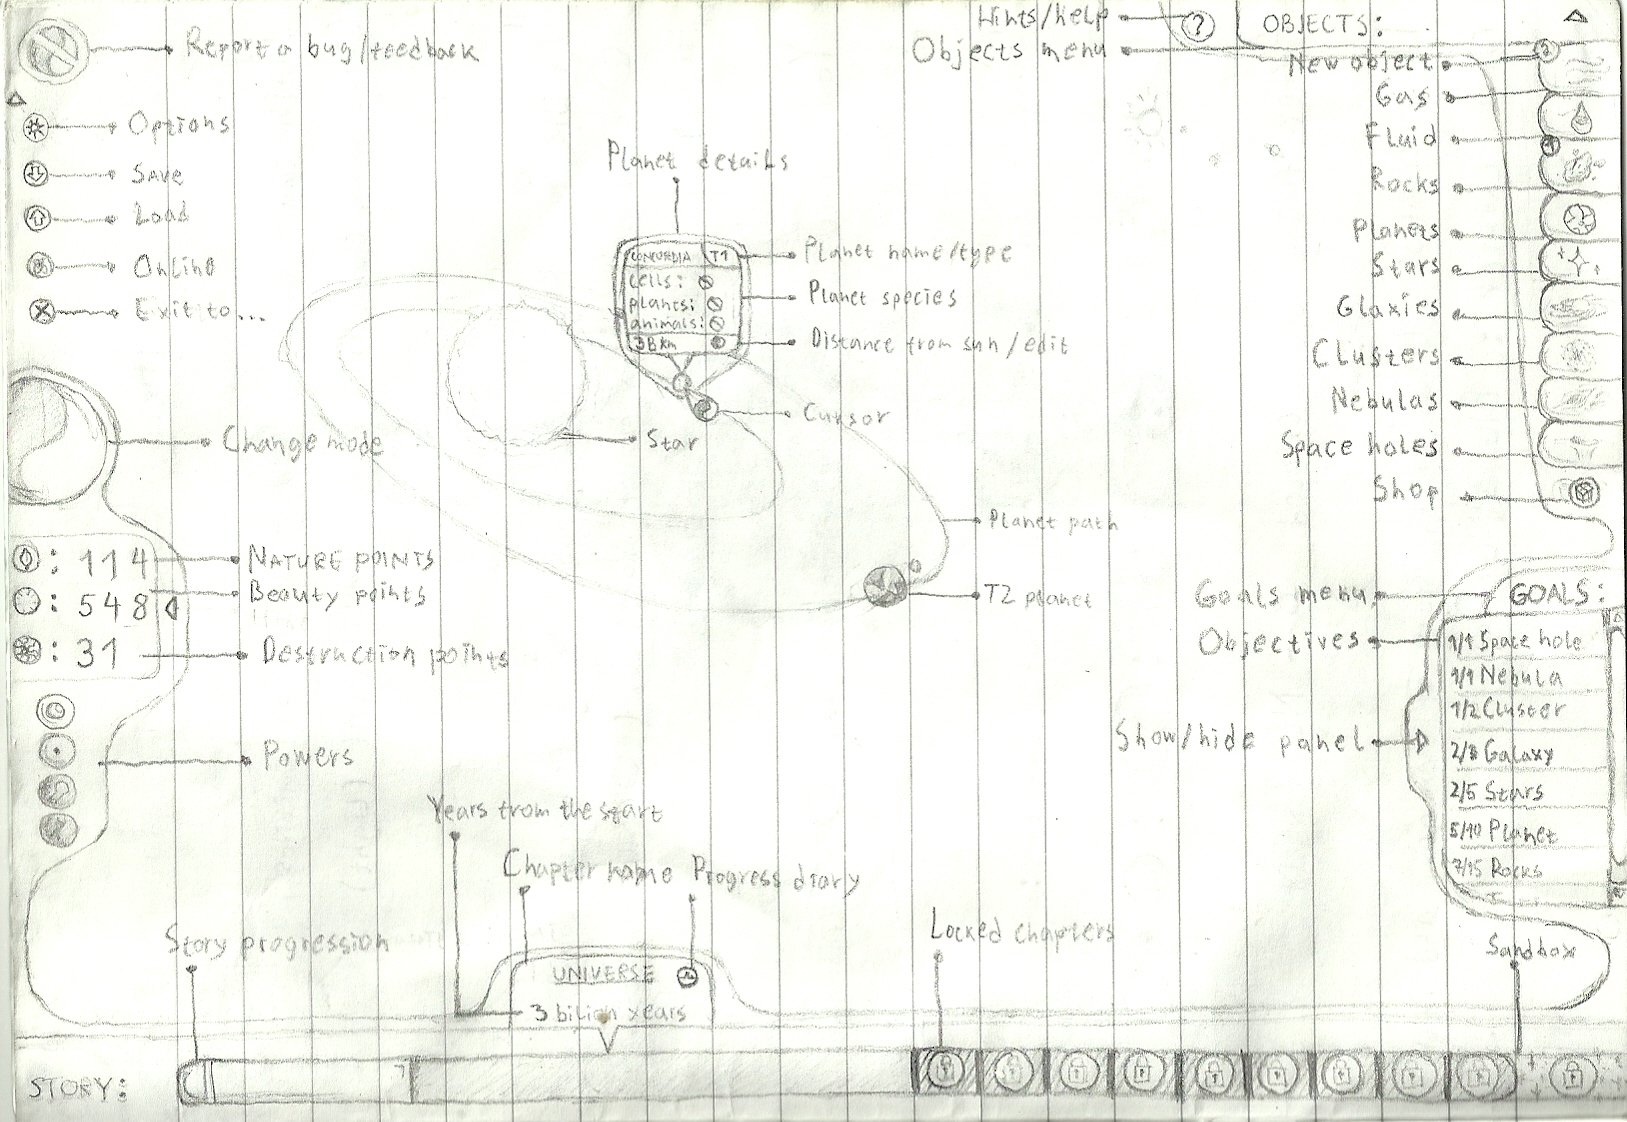 Report a bug/feedback
Options
Save
Load
Online
Exit to...
Change mode
: 114
: 548
: 31
NATURE POINTS
Beauty points
Destruction points
Powers
Hints/help
?
Objects menu
OBJECTS:
New object
Gas
Fluid
Rocks
Planets
Stars
Glaxies
Clusters
Nebulas
Space holes
Shop
Planet details
CONCORDIA T1
cells:
plants:
animals:
3B km
Planet name/type
Planet species
Distance from sun/edit
Cursor
Star
Planet path
T2 planet
Goals menu
Objectives
Show/hide panel
GOALS:
1/1 Space hole
1/1 Nebula
1/2 Cluster
2/8 Galaxy
2/5 Stars
5/10 Planet
7/15 Rocks
Years from the start
Chapter name
Progress diary
Story progression
UNIVERSE
3 bilion years
Locked chapters
Sandbox
STORY: